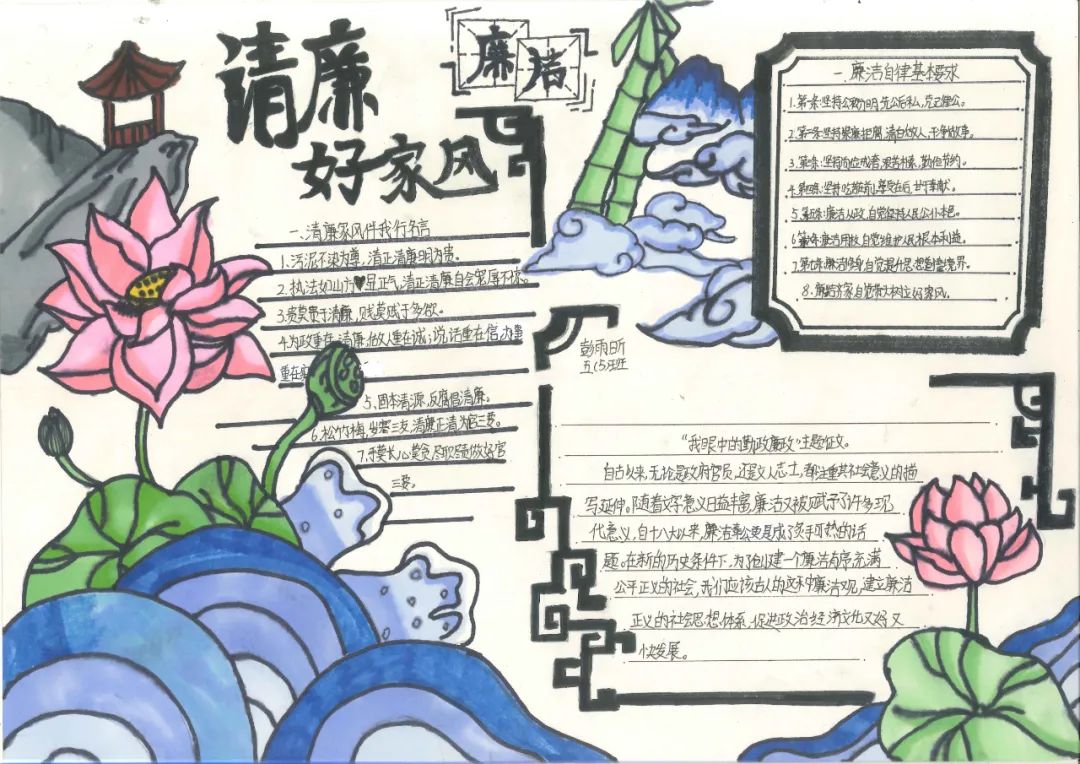 清廉
好家风
廉洁
一.清廉家风伴我行名言
1.污泥不染为尊,清正清廉明为贵。
2.执法如山方♥显正气,清正清廉自会宠辱不惊。
3.贵莫贵于清廉,贱莫贱于多欲。
4.为政重在清廉;做人重在诚;说话重在信为重
重在
5、固本清源,反腐倡清廉。
6、松竹梅,岁寒三友,清廉正清为官三要。
7.手莫长心莫贪尽职 做好官
三要。
一.廉洁自律基本要求
1.第一条:坚持公私分明,先公后私,克己奉公。
2.第二条:坚持崇廉拒腐,清白做人,干净做事。
3.第三条:坚持尚俭戒奢,艰苦朴素,勤俭节约。
4.第四条:坚持吃苦在前,享受在后,甘于奉献。
5.第五条:廉洁从政,自觉保持人民公仆本色。
6.第六条:廉洁用权,自觉维护人民根本利益。
7.第七条:廉洁修身,自觉提升思想道德境界。
8.廉洁齐家,自觉带头树立好家风。
彭雨昕
五(5)班
“我眼中的勤政廉政”主题征文。
自古以来,无论是政府官员,还是文人志士,都注重其社会意义的描
写延伸。随着文字意义日益丰富,廉洁又被赋予了许多现
代意义,自十八大以来,廉洁奉公更是成了炙手可热的话
题。在新的历史条件下,为了创建一个廉洁有序,充满
公平正义的社会,我们应该古人的这种廉洁观,建立廉洁
正义的社会思想体系,促进政治经济文化又好又
快发展。